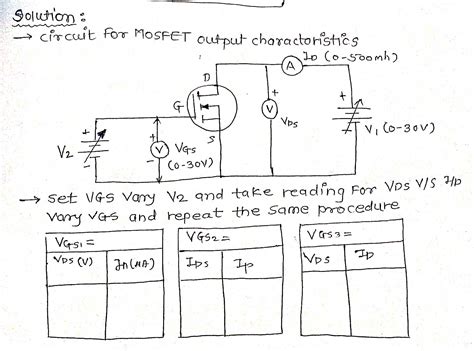 Solution:
→ circuit for MOSFET output charactoristics
ID (0-500mh)
A
D
G
S
+
V
VDS
+
V1 (0-30V)
+
V2
-
+
V
-
VGS
(0-30V)
→ set VGS vary V2 and take reading For VDS V/S ID
vary VGS and repeat the same procedure
VGS1=
VDS (V)
ID(MA)
VGS2=
IDS
ID
VGS3=
VDS
ID